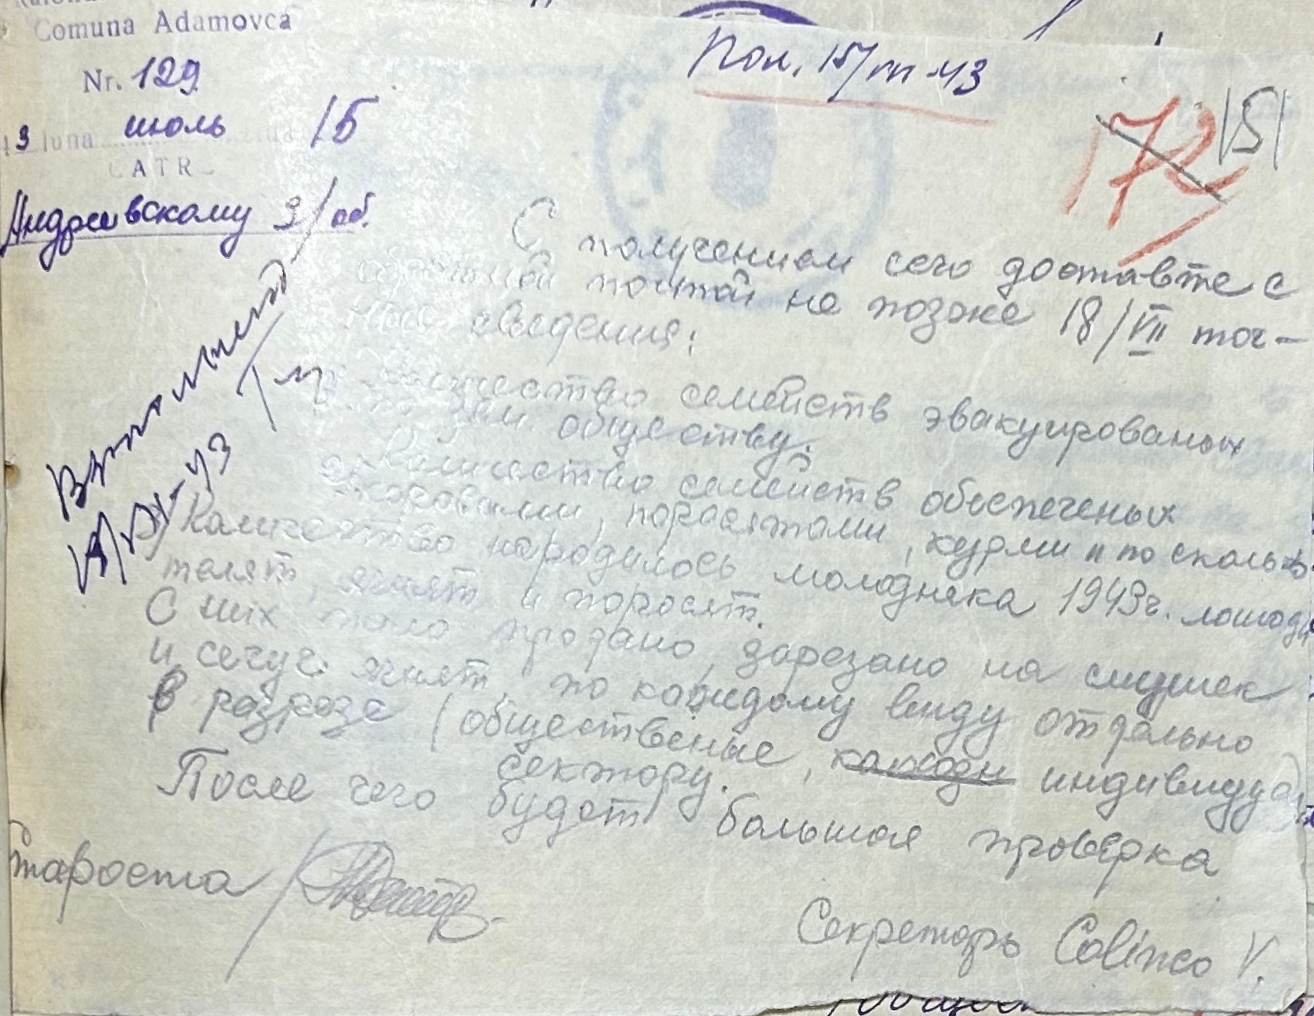 Comuna Adamovca
Nr. 129
43 luna июль 15
CATR
Андреевскому з/об.
Пол. 15/VII-43
172
151
С получением сего доставте с
обратной почтой не позже 18/VII точ-
ные сведения:
Количество семейств эвакуированых
по зем. обществу.
Количество семейств обеспеченых
коровами, поросятами, курми и по сколько
Количество народилось молодняка 1943г. лошад
телят, ягнят и поросят.
С них пало продано, зарезано на смушек
и сечуг ягнят, по каждому виду отдельно
в разрезе (общественые, каждом индивидуа
сектору.
После чего будет большая проверка
староста
Секретарь Colinco V.